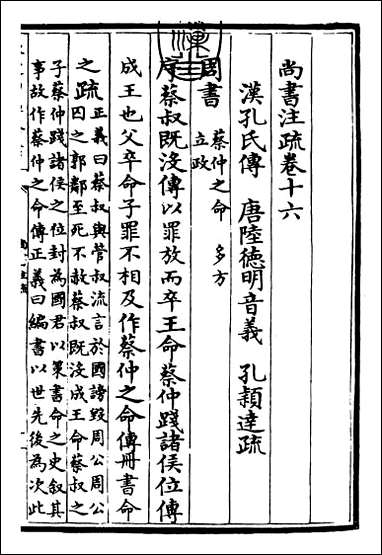 尚書注疏卷十六
漢孔氏傳　唐陸德明音義　孔穎達疏
周書
蔡仲之命　多方
立政
序蔡叔既沒傳以罪放而卒王命蔡仲踐諸侯位傳
成王也父卒命子罪不相及作蔡仲之命傳冊書命
之疏正義曰蔡叔與管叔流言於國謗毀周公周公
囚之郭鄰至死不赦蔡叔既沒成王命蔡叔之
子蔡仲踐諸侯之位封為國君以策書命之史叙其
事故作蔡仲之命傳正義曰編書以世先後為次此